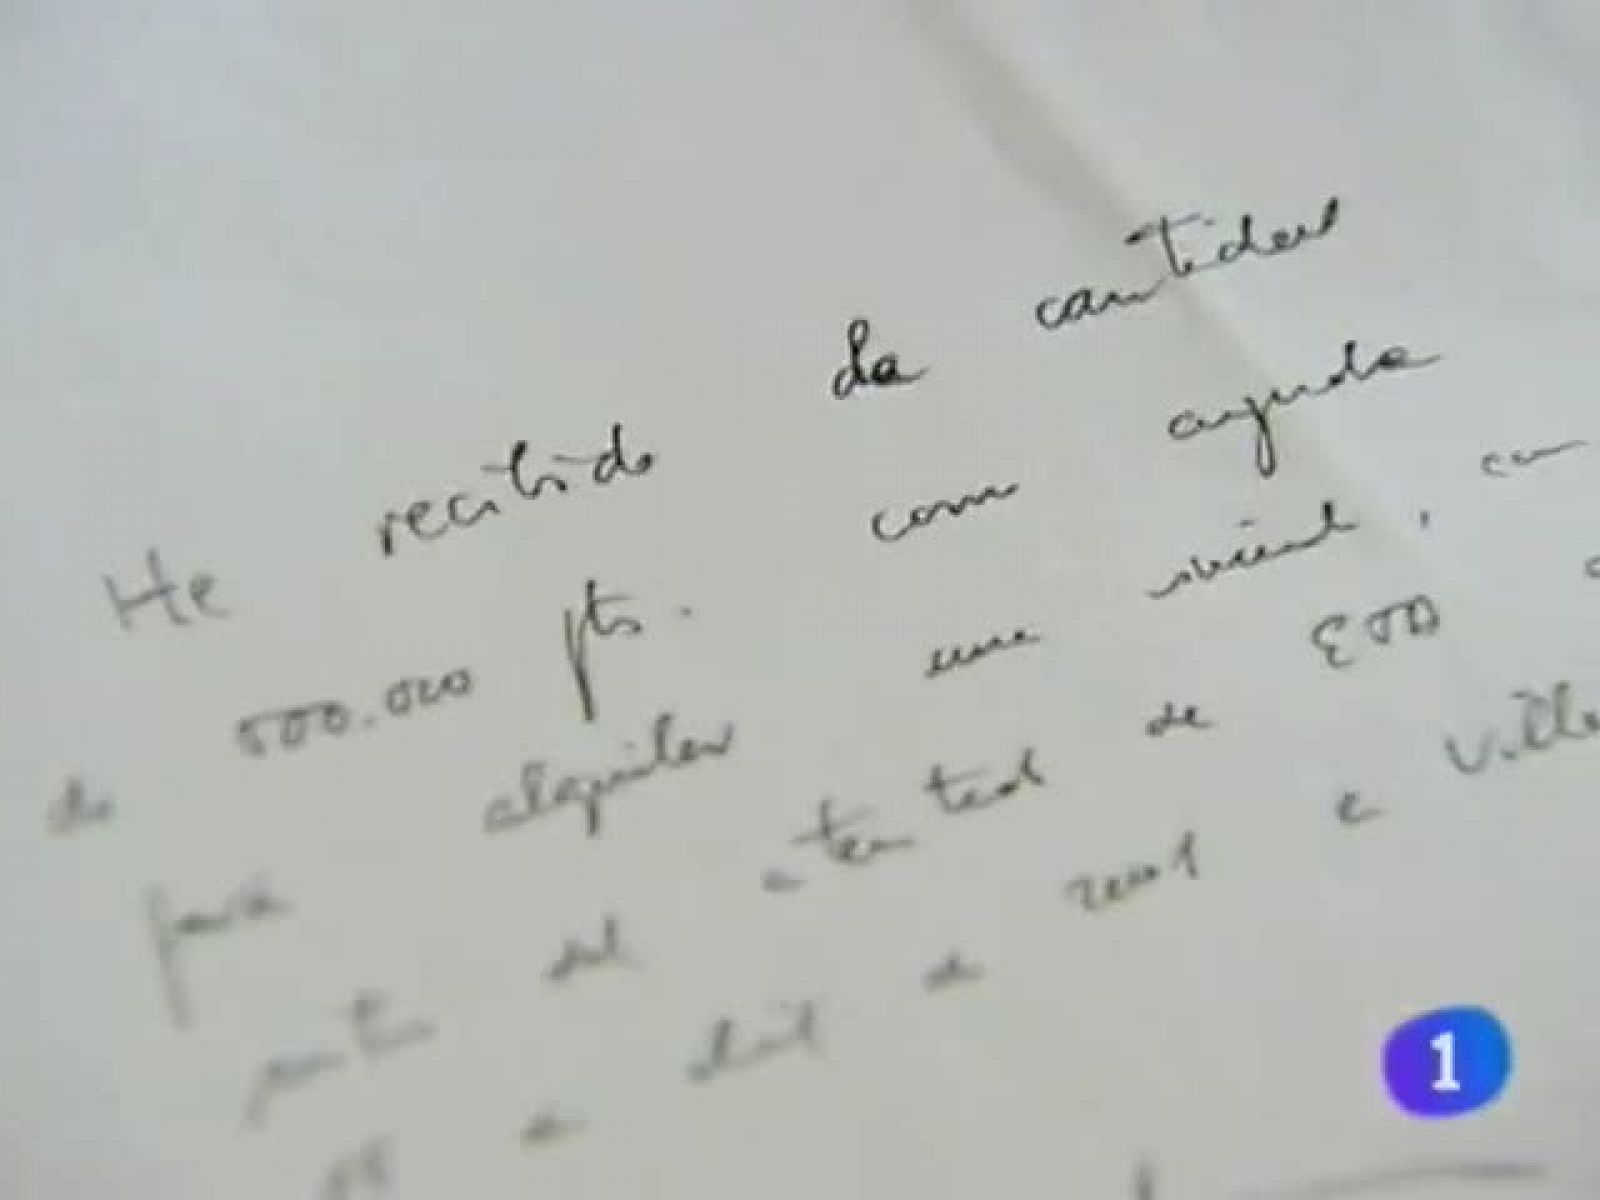 He recibido la cantidad
de 500.000 pts. como ayuda
para alquilar una vivienda, con
motivo del atentado de ETA
de abril de 2001 en Ville
1